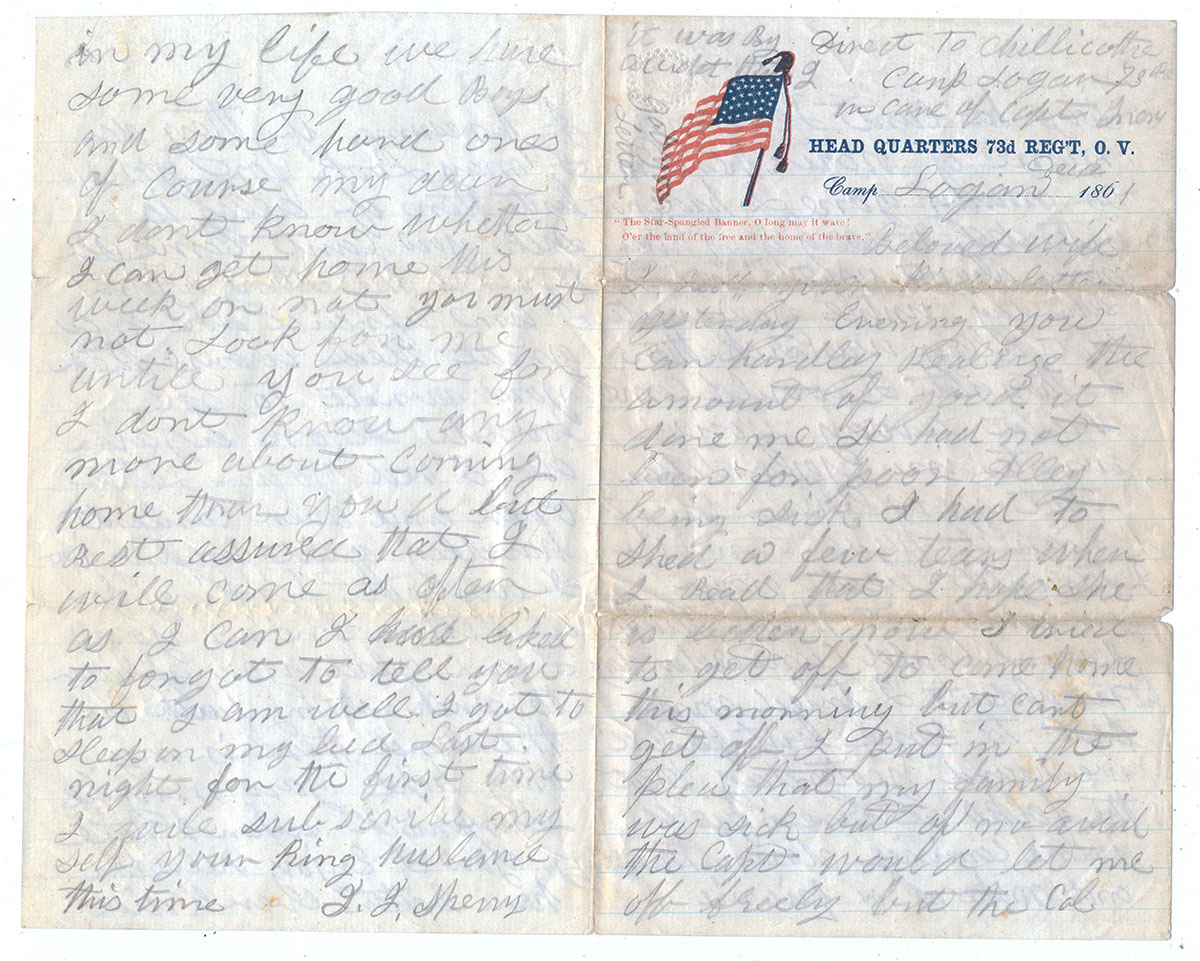 it was By
Direct To Chillicothe
Camp Logan 73
in care of Capt
HEAD QUARTERS 73d REG'T, O. V.
Camp Logan 1861
"The Star-Spangled Banner, O long may it wave!
O'er the land of the free and the home of the brave."
Beloved wife
I your kind letter
yesterday Evening you
can hardley Realize the
amount of good it
done me If had not
been for poor
being sick I had to
shed a few tears when
I Read that I hope she
is better now I tried
to get off to come home
this morning but cant
get off I put in the
plea that my family
was sick but of no avail
the Capt would let me
off freely but the Col
in my life we have
some very good Boys
and some hard ones
of Course my dear
I dont know whether
I can get home this
week or not you must
not Look for me
untill you see for
I dont know any
more about Coming
home than you d but
Rest assured that I
will come as often
as I can I liked
to forgot to tell you
that I am well I got to
sleep in my bed Last
night for the first time
I will subscribe my
self your King husband
this time J. J. Sperry